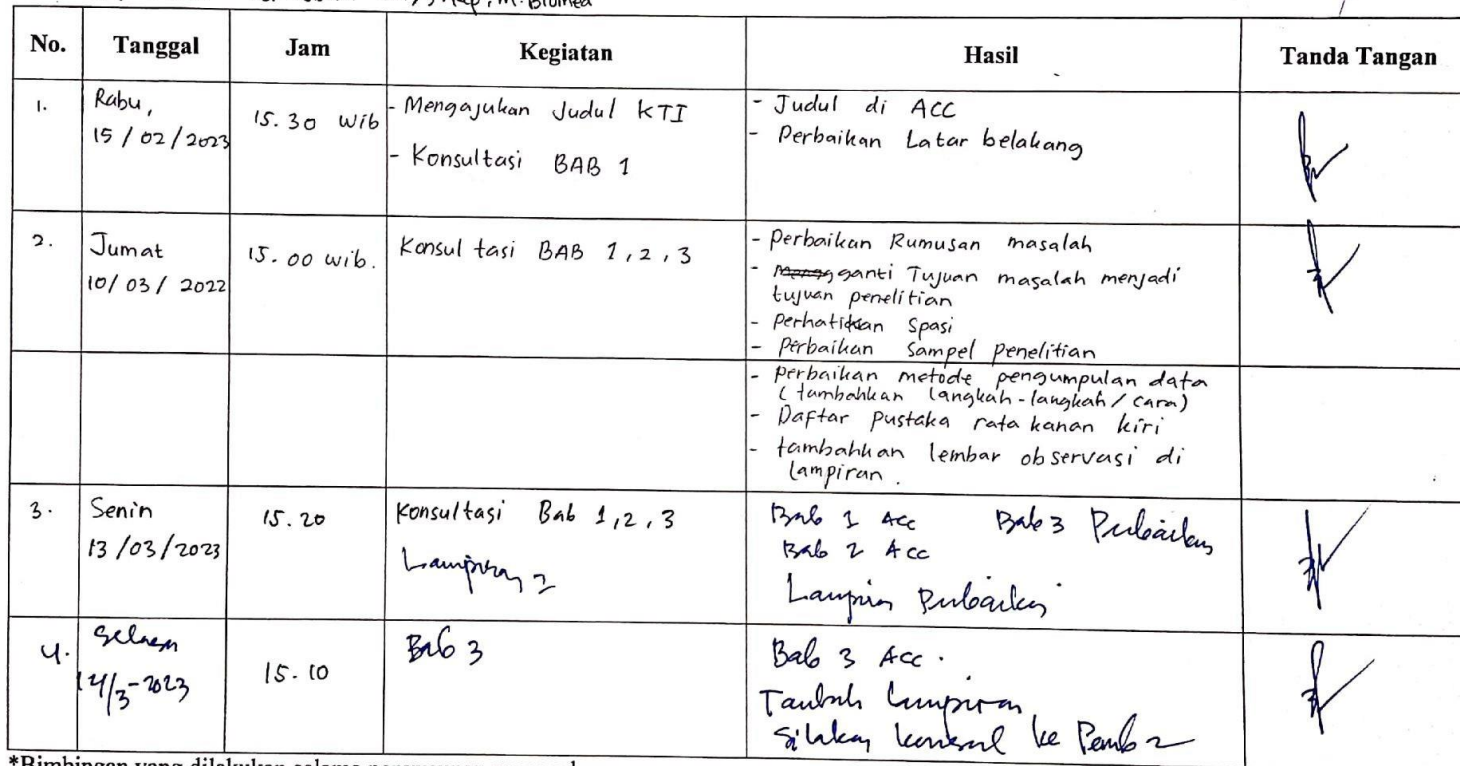 M. Biomed
No. Tanggal Jam Kegiatan Hasil Tanda Tangan
1. Rabu, 15/02/2023 15.30 wib
- Mengajukan Judul KTI
- Konsultasi BAB 1
- Judul di ACC
- Perbaikan Latar belakang
2. Jumat 10/03/2022 15.00 wib. Konsultasi BAB 1,2,3
- Perbaikan Rumusan masalah
- ganti Tujuan masalah menjadi
tujuan penelitian
- Perhatikan Spasi
- Perbaikan Sampel penelitian
- perbaikan metode pengumpulan data
(tambahkan langkah-langkah/cara)
- Daftar pustaka rata kanan kiri
- tambahkan lembar observasi di
lampiran.
3. Senin 13/03/2023 15.20
Konsultasi Bab 1,2,3
Lampiran 2
Bab 1 Acc Bab 3 Perbaikan
Bab 2 Acc
Lampiran Perbaikan
4. Selasa 14/3-2023 15.10 Bab 3
Bab 3 Acc.
Tambah lampiran
Silakan konsul ke Pemb 2
*Bimbingan yang dilakukan selama